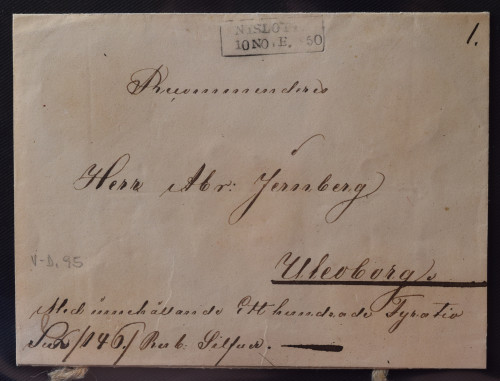 NYSLOTT
10 NOVE. 1850
1.
Recommenderes
Herr Abr: Jernberg
Uleoborg.
V-D. 95
Med innehållande Ett hundrade Fyratio
Sex /146/ Rub. Silfver.